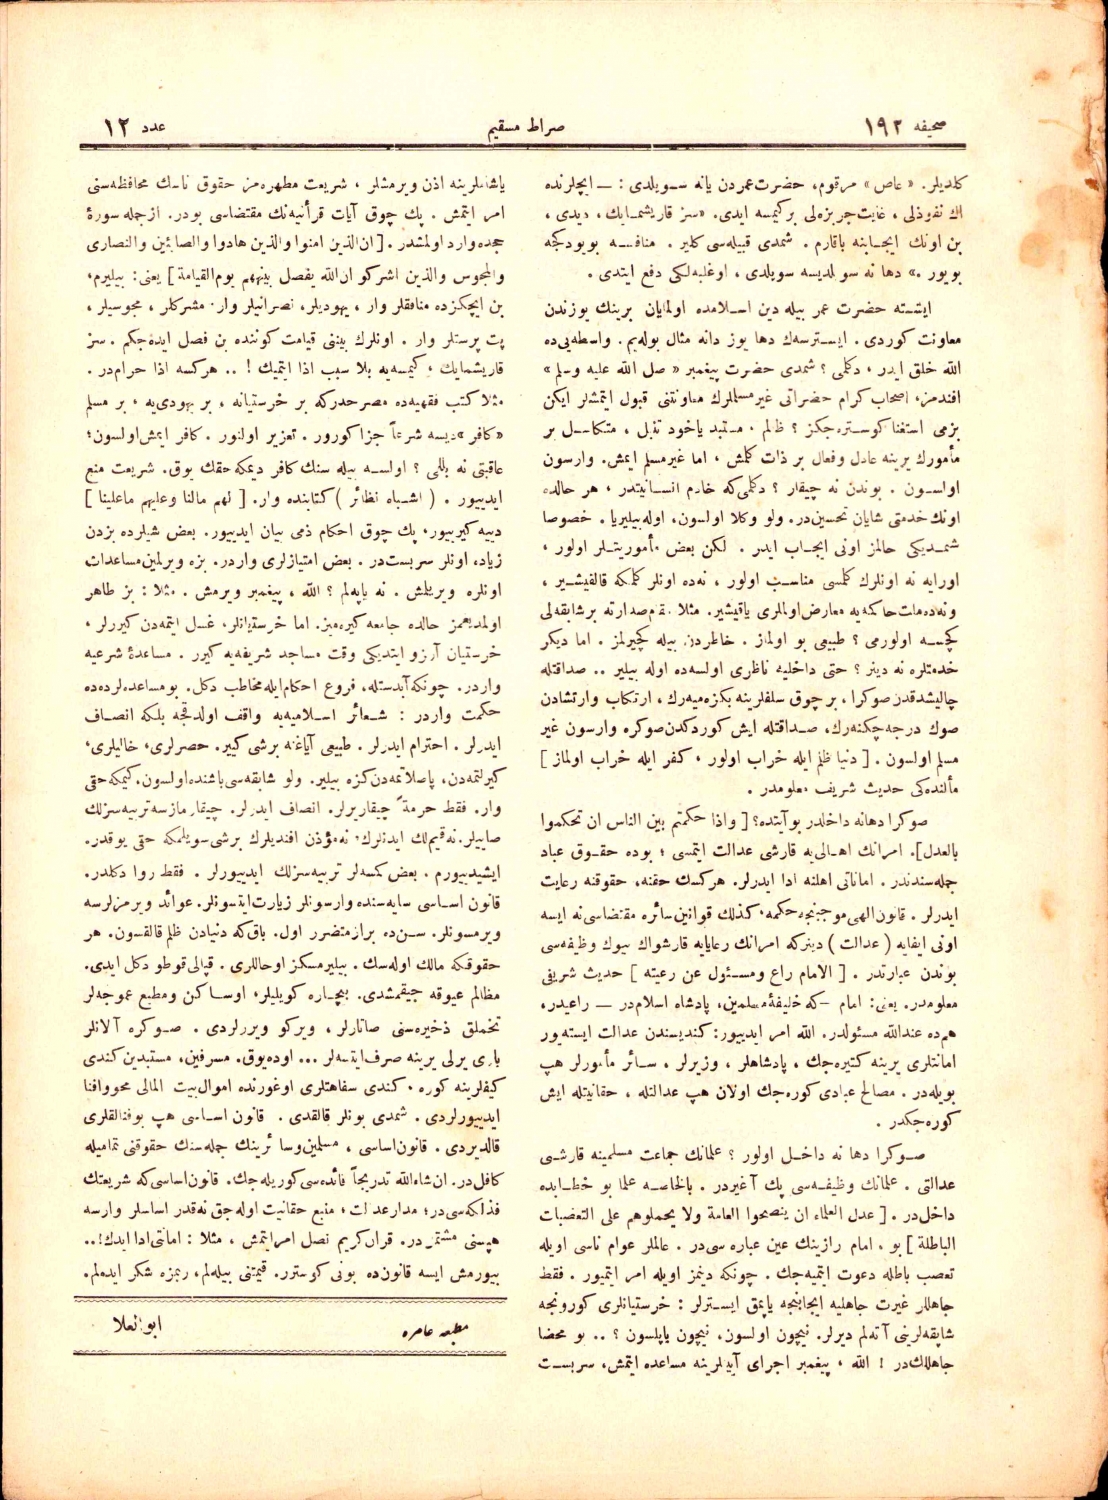 صحیفه ١٩٢
صراط مستقیم
عدد ١٢
كلدیلر. «عاص» مرقوم، حضرت عمردن یانه سویلدی : — ایچلرنده
اك نفوذلی ، غایت جربزه‌لی بركیمسه ایدی. «سز قاریشمایك ، دیدی ،
بن اونك ایجابنه باقارم . شمدی قبیله‌سی كلیر . منافسه بویودكجه
بویور .» دها نه سویلدیسه سویلدی ، اوغلبه‌لكی دفع ایتدی .
ایشته حضرت عمر بیله دین اسلامده اولمایان برینك یوزندن
معاونت كوردی . ایسترسه‌ك دها یوز دانه مثال بوله‌یم . واسطه‌یی‌ده
الله خلق ایدر ، دكلمی ؟ شمدی حضرت پیغمبر « صل الله علیه وسلم »
افندمز، اصحاب كرام حضراتی غیرمسلملرك معاونتنی قبول ایتمشلر ایكن
بزمی استغنا كوستره‌جكز ؟ ظالم ، مستبد یاخود تنبل ، متكاسل بر
مأمورك یرینه عادل وفعال بر ذات كلمش ، اما غیرمسلم ایمش. وارسون
اولسون . بوندن نه چیقار ؟ دكلمی‌كه خادم انسانیتدر ، هر حالده
اونك خدمتی شایان تحسین‌در. ولو وكلا اولسون، اوله‌بیلیریا . خصوصا
شمدیكی حالمز اونی ایجاب ایدر . لكن بعض مأموریتلر اولور ،
اورایه نه اونلرك كلمسی مناسب اولور ، نه‌ده اونلر كلمكه قالقیشیر ،
ونه‌ده‌ملت حاكمه‌یه معارض اولملری یاقیشیر. مثلا مقام‌صدارته برشابقه‌لی
كچسه اولورمی ؟ طبیعی بو اولماز . خاطردن بیله كچیرلمز . اما دیكر
خدمتلره نه دینر ؟ حتی داخلیه ناظری اولسه‌ده اوله بیلیر .. صداقتله
چالیشدقدن صوكرا ، بر چوق سلفلرینه بكزه‌میه‌رك ، ارتكاب وارتشادن
صوك درجه چكنه‌رك، صداقتله ایش كوردكدن‌صوكره وارسون غیر
مسلم اولسون . [ دنیا ظلم ایله خراب اولور ، كفر ایله خراب اولماز ]
مألنده‌كی حدیث شریف معلومدر .
صوكرا دهانه داخلدر بوآیتده؟ [ واذا حكمتم بین الناس ان تحكموا
بالعدل]. امرانك اهالی‌یه قارشی عدالت ایتمسی ؛ بوده حقوق عباد
جمله‌سندندر . اماناتی اهلنه ادا ایدرلر. هركسك حقنه، حقوقنه رعایت
ایدرلر . قانون‌الهی موجبنجه حكمه، كذلك قوانین سائره مقتضاسی‌نه ایسه
اونی ایفایه ( عدالت ) دینركه امرانك رعایایه قارشواك بیوك وظیفه‌سی
بوندن عبارتدر . [ الامام راع ومسئول عن رعیته ] حدیث شریفی
معلومدر. یعنی: امام –كه خلیفهٔ مسلمین، پادشاه اسلام‌در – راعیدر،
هم‌ده عندالله مسئولدر. الله امر ایدییور: كندیسندن عدالت ایسته‌یور
امانتلری یرینه كتیره‌جك ، پادشاهلر ، وزیرلر ، سائر مأمورلر هپ
بویله‌در . مصالح عبادی كوره‌جك اولان هپ عدالتله ، حقانیتله ایش
كوره‌جكدر .
صوكرا دها نه داخل اولور ؟ علمانك جماعت مسلمینه قارشی
عدالتی . علمانك وظیفه‌سی پك آغیردر . بالخاصه علما بو خطابده
داخل‌در . [ عدل العلماء ان ینصحوا العامة ولا یحملوهم علی التعصبات
الباطلة ] بو ، امام رازینك عین عباره سی‌در . عالملر عوام ناسی اویله
تعصب باطله دعوت ایتمیه‌جك . چونكه دینمز اویله امر ایتمیور . فقط
جاهللر غیرت جاهلیه ایجابنجه یاپمق ایسترلر : خرستیانلری كورونجه
شاپقه‌لرنی آته‌لم دیرلر. نیچون اولسون، نیچون یاپلسون ؟ .. بو محضا
جاهللك‌در ! الله ، پیغمبر اجرای آیینلرینه مساعده ایتمش، سربست
یاشاملرینه اذن ویرمشلر ، شریعت مطهره‌مز حقوق ناسك محافظه‌سنی
امر ایتمش . پك چوق آیات قرآنیه‌نك مقتضاسی بودر. ازجمله سورهٔ
حجده‌وارد اولمشدر . [ ان الذین امنوا والذین هادوا والصابئین والنصاری
والمجوس والذین اشركو ان‌الله یفصل بینهم یوم‌القیامة ] یعنی: بیلیرم،
بن ایچكزده منافقلر وار ، یهودیلر، نصرانیلر وار، مشركلر ، مجوسیلر ،
پت پرستلر وار . اونلرك بیننی قیامت كوننده بن فصل ایده‌جكم . سز
قاریشمایك ، كیمسه‌یه بلا سبب اذا ایتمیك ! .. هركسه اذا حرام‌در .
مثلا كتب فقهیه‌ده مصرحدركه بر خرستیانه ، بر یهودی‌یه ، بر مسلم
«كافر »دیسه شرعاً جزا كورور . تعزیر اولنور . كافر ایمش‌اولسون؛
عاقبتی نه بللی ؟ اولسه بیله سنك كافر دیمكه حقك یوق. شریعت منع
ایدییور . ( اشباه نظائر ) كتابنده وار. [ لهم مالنا وعلیهم ماعلینا ]
دییه كیریور، پك چوق احكام ذمی بیان ایدییور. بعض شیلرده بزدن
زیاده اونلر سربست‌در . بعض امتیازلری واردر. بزه ویرلمین‌مساعدات
اونلره ویریلمش . نه یاپه‌لم ؟ الله ، پیغمبر ویرمش . مثلا : بز طاهر
اولمدیغمز حالده جامعه كیره‌میز. اما خرستیانلر، غسل ایتمه‌دن كیررلر ،
خرستیان آرزو ایتدیكی وقت مساجد شریفه‌یه كیرر . مساعدهٔ شرعیه
واردر. چونكه‌آبدستله، فروع احكام‌ایله مخاطب دكل. بومساعده‌لرده‌ده
حكمت واردر : شعائر اسلامیه‌یه واقف اولدقجه بلكه انصاف
ایدرلر . احترام ایدرلر . طبیعی آیاغنه برشی كییر. حصرلری، خالیلری،
كیرلتمه‌دن، پاصلاتمه‌دن كزه بیلیر. ولو شابقه‌سی باشنده‌اولسون. كیمكه‌حقی
وار. فقط حرمةً چیقاریرلر. انصاف ایدرلر. چیقارمازسه تربیه‌سزلك
صایبلیر. نه قیم‌لك ایدنلرك، نه‌مؤذن افندیلرك برشی‌سویلمكه حقی یوقدر.
ایشیدییورم . بعض كمسه‌لر تربیه‌سزلك ایدییورلر . فقط روا دكلدر.
قانون اساسی سایه‌سنده وارسونلر زیارت ایتسونلر. عوائد ویرمزلرسه
ویرمسونلر. سن‌ده برازمتضرر اول. باق‌كه دنیادن ظلم قالقسون. هر
حقوقكه مالك اوله‌سك . بیلیرمسكز اوحاللری . قپالی قوطو دكل ایدی.
مظالم عیوقه چیقمشدی. بیچاره كویلیلر، اوساكن ومطیع عوجه‌لر
تخملق ذخیره‌سنی صاتارلر ، ویركو ویررلردی . صوكره آلانلر
باری یرلی یرینه صرف‌ایتسه‌لر ... اوده‌یوق. مسرفین، مستبدین كندی
كیفلرینه كوره ، كندی سفاهتلری اوغورنده اموال‌بیت المالی محووافنا
ایدییورلردی . شمدی بونلر قالقدی . قانون اساسی هپ بوفنالقلری
قالدیردی . قانون‌اساسی ، مسلمین‌وسائرینك جمله‌سنك حقوقنی تمامیله
كافل‌در. ان‌شاءالله تدریجاً فائده‌سی كوریله‌جك. قانون‌اساسی‌كه شریعتك
فذلكه‌سی‌در؛ مدارعدالت ، منبع حقانیت اوله‌جق نه‌قدر اساسلر وارسه
هپسنی مشتمل‌در. قرآن‌كریم نصل امرایتمش ، مثلا : امانتی‌ادا ایدك!..
بیورمش ایسه قانون‌ده بونی كوسترر. قیمتنی بیله‌لم، ربمزه شكر ایده‌لم.
ابوالعلا
مطبعه عامره